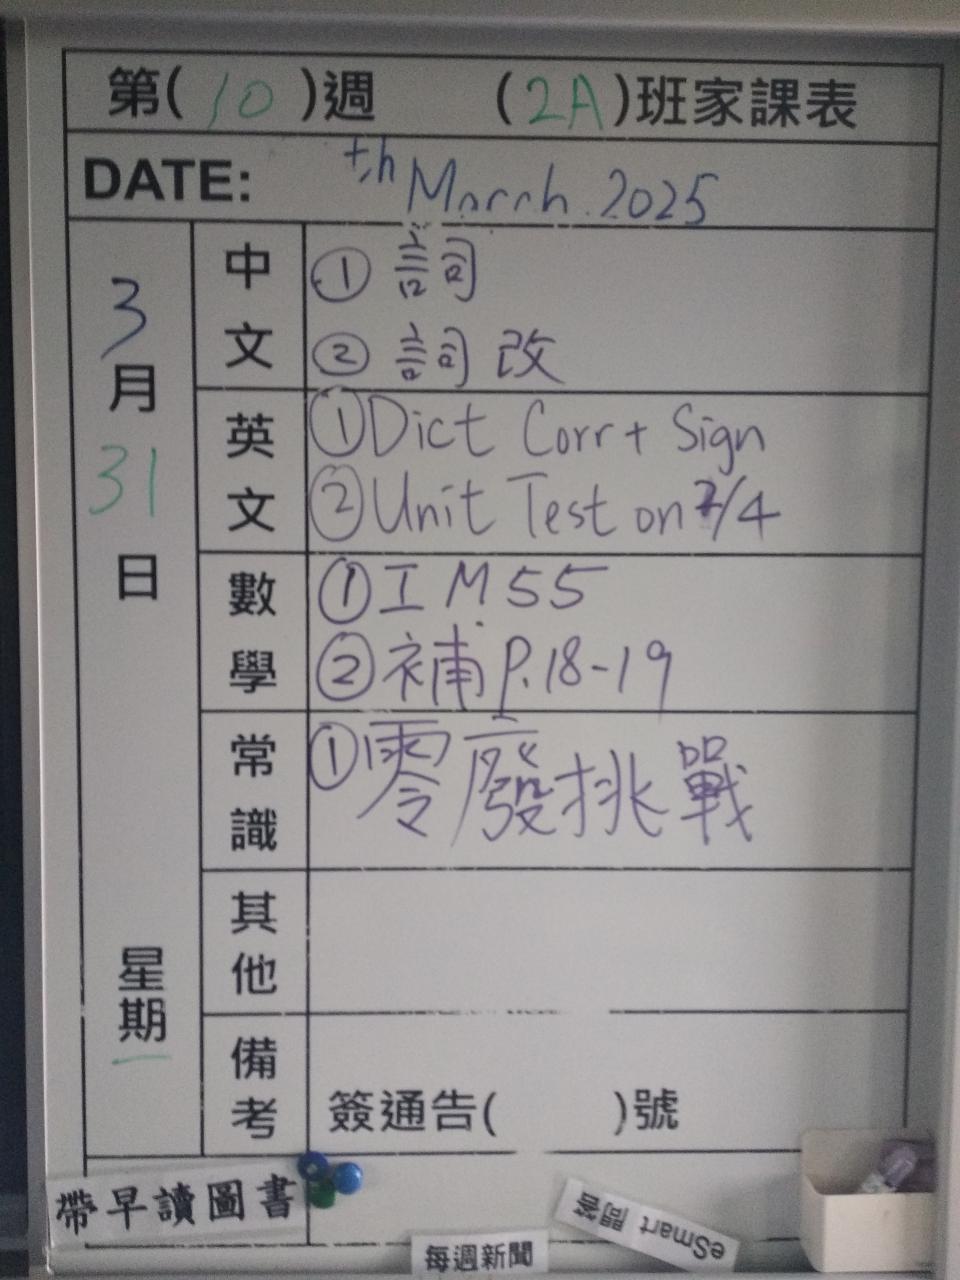 第( 10 )週 (2A)班家課表
DATE: th March 2025
3月31日
星期一
中文
① 詞
② 詞改
英文
① Dict Corr + Sign
② Unit Test on 2/4
數學
① IM55
② 補 P.18-19
常識
① 零廢挑戰
其他
備考
簽通告( )號
帶早讀圖書
每週新聞
eSmart 問答